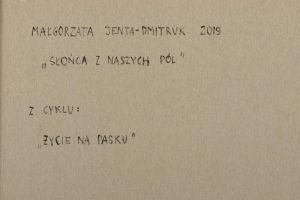 MAŁGORZATA JENTA-DMITRUK 2019
„SŁOŃCA Z NASZYCH PÓL"
Z CYKLU:
„ŻYCIE NA PASKU"